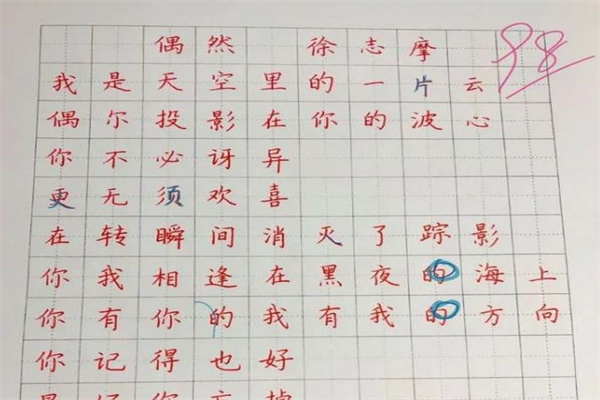 偶然 徐志摩
98
我是天空里的一片云
偶尔投影在你的波心
你不必讶异
更无须欢喜
在转瞬间消灭了踪影
你我相逢在黑夜的海上
你有你的我有我的方向
你记得也好
最好你忘掉